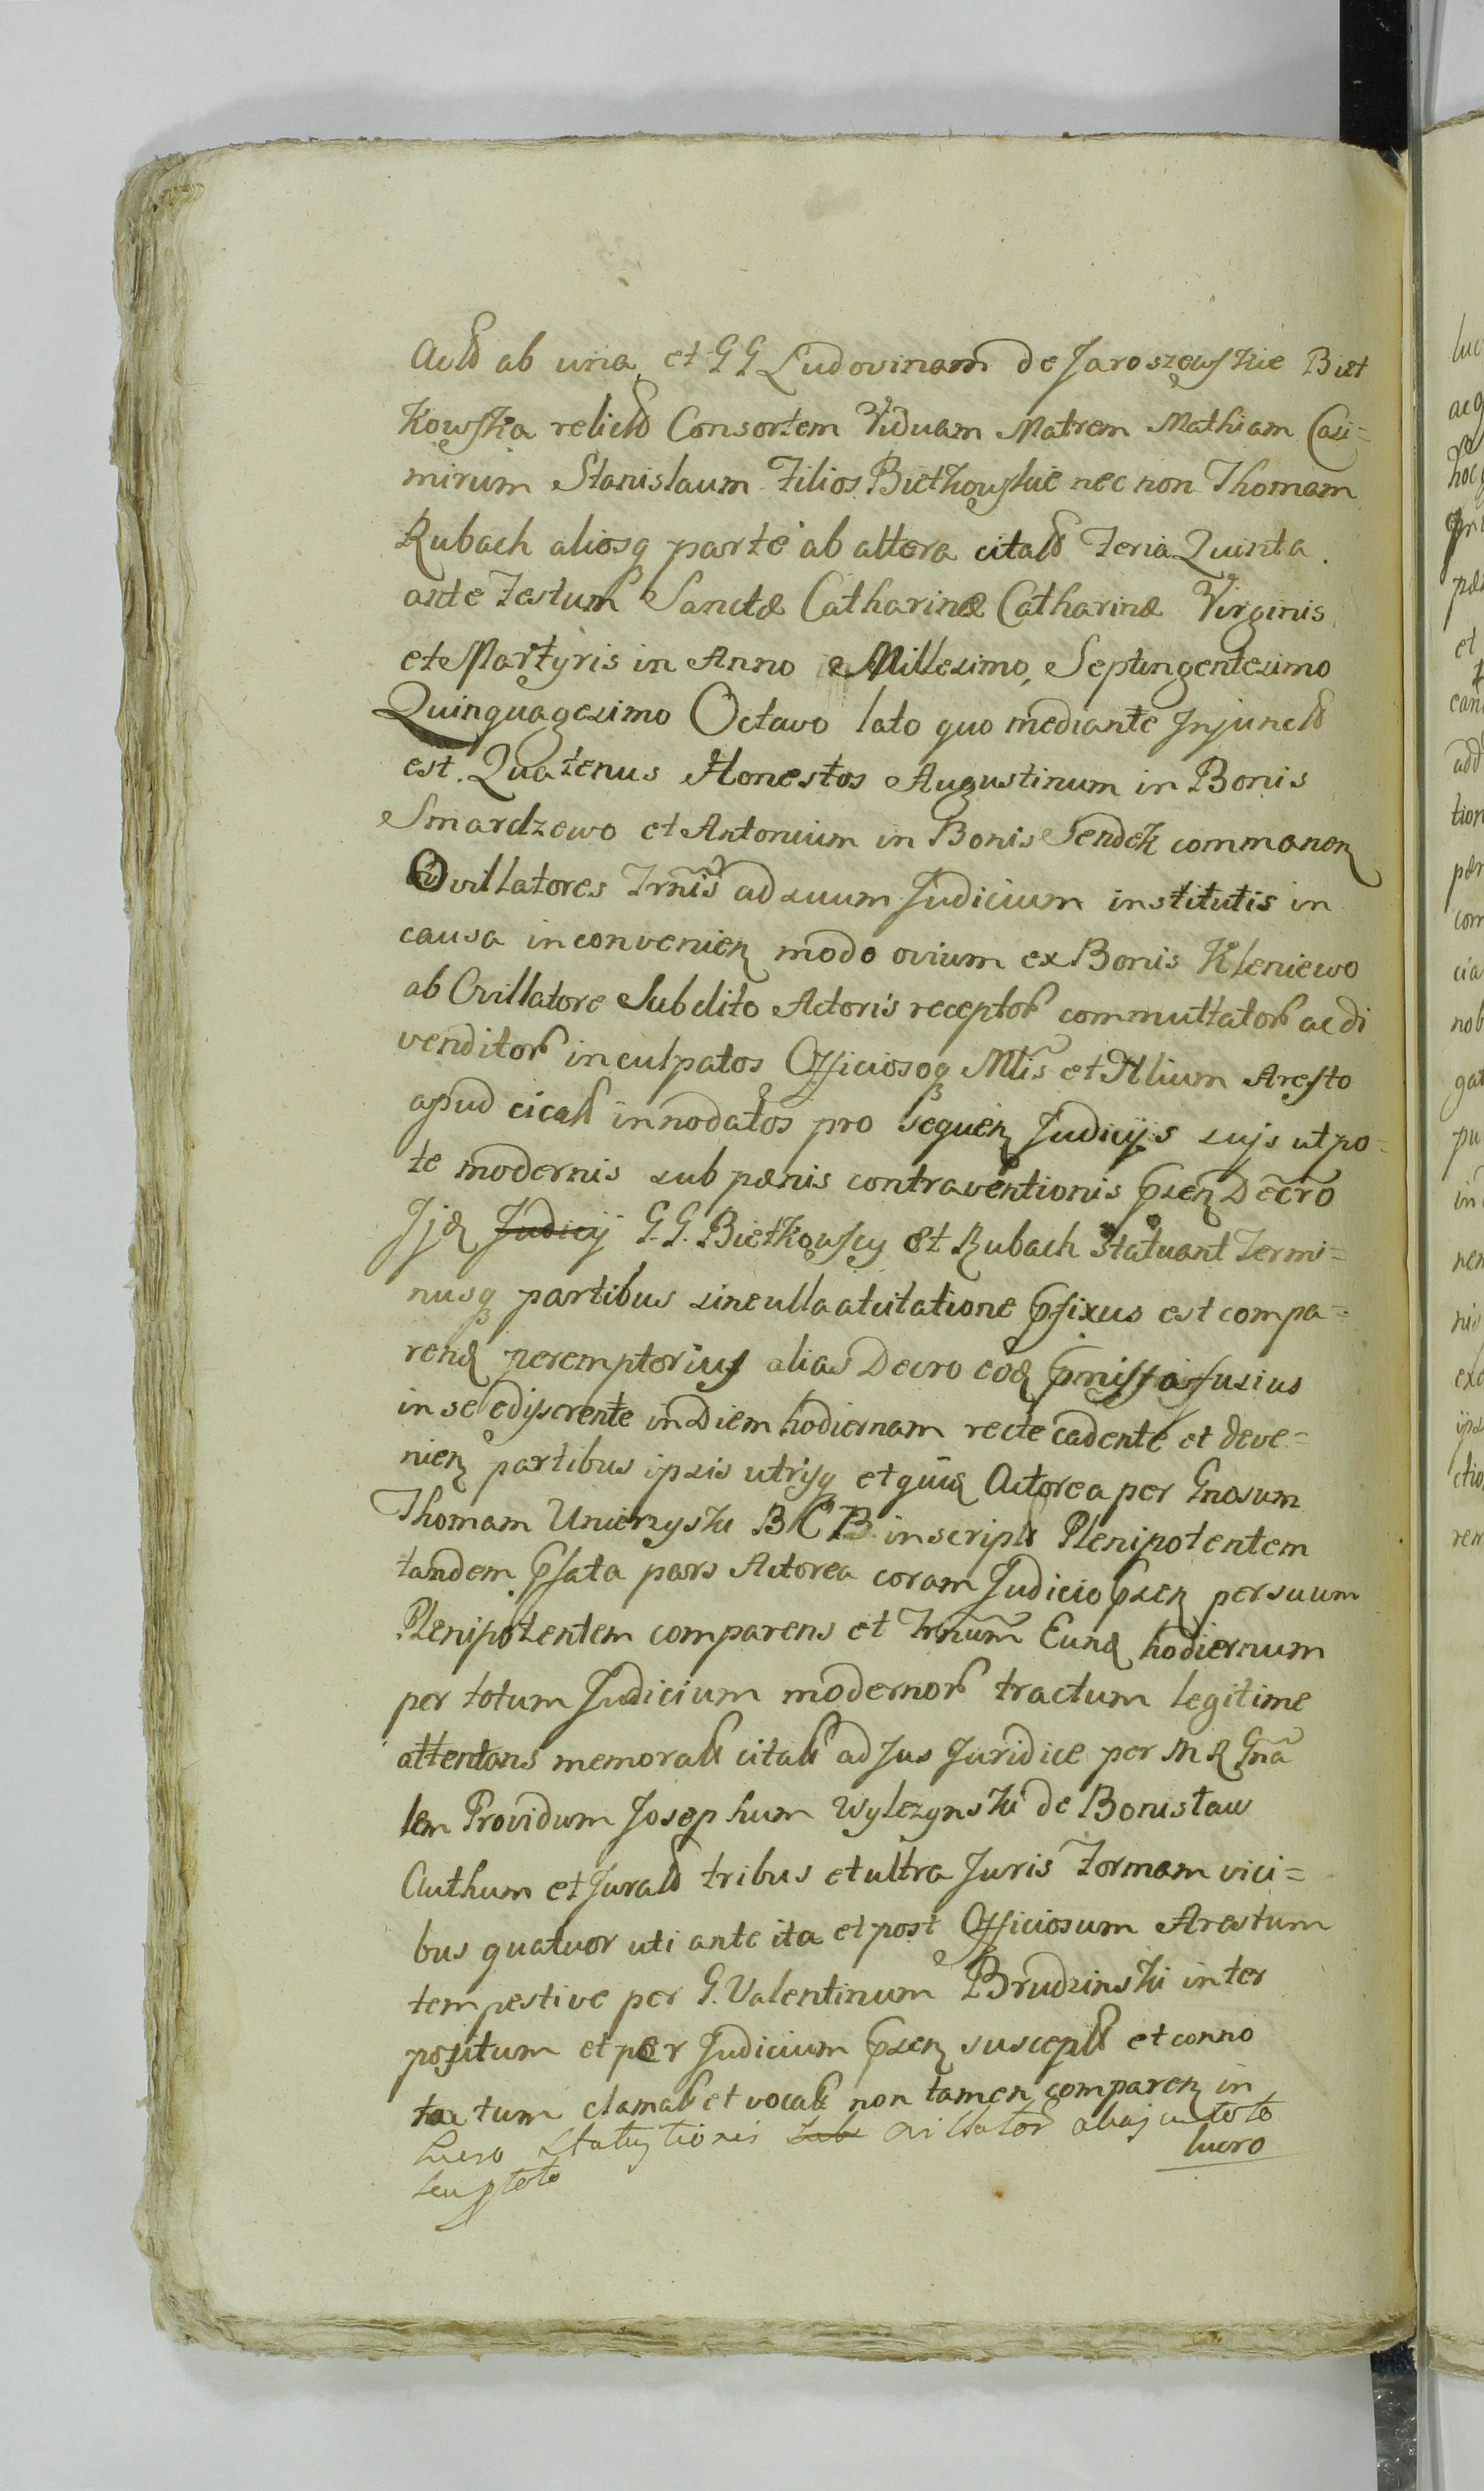 Actō ab una, et G G Ludovinam de Jaroszewskie Biet
kowska relictō Consortem Viduam Matrem Mathiam Casi=
mirum Stanislaum Filios Bietkowskie nec non Thomam
Rubach aliosq parte ab altera citatō Feria Quinta
ante Festum Sanctæ Catharinæ Catharinæ Virginis
et Martyris in Anno Millesimo, Septingentesimo
Quinquagesimo Octavo lato quo mediante Injunctō
est. Quatenus Honestos Augustinum in Bonis
Smardzewo et Antonium in Bonis Sendek commonen
Ovillatores Trnis ad suum Judicium institutis in
causa inconvenien modo ovium ex Bonis Kleniewo
ab Ovillatore Subdito Actoris receptor commuttator ac di
venditor inculpatos Officiosoq Mtis et Nlium Aresto
apud citatō innodatos pro sequen Judicijs suis utpo=
te modernis sub pænis contraventionis psen Decro
Ijd Judicij G. G. Bietkowscy et Rubach statuant Termi=
nusq partibus sine ulla atutatione pfixus est compa=
rend peremptorius alias Decro eod pmissa fusius
in se edisserente in Diem hodiernam recte cadente et deve=
nien partibus ipsis utrisq et quid Actorea per Gnosum
Thomam Unierzyski B C B inscriptō Plenipotentem
tandem pfata pars Actorea coram Judicio psen per suum
Plenipotentem comparens et Trnum Eund hodiernum
per totum Judicium modernor tractum legitime
attentans memoratō citatō ad Jus Juridice per M R Gna
lem Providum Josephum Wylezynski de Bonislaw
Authum et Juratō tribus et ultra Juris Formam vici=
bus quatuor uti ante ita et post Officiosum Arestum
tempestive per G. Valentinum Brudzinski inter
positum et per Judicium psen susceptō et conno
tatum clamatō et vocatō non tamen comparen in
lucro Statutionis ovillator alias in toto
lucro